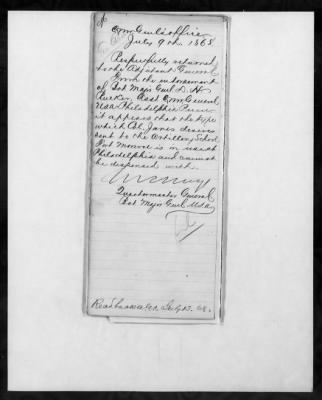 Qrm Genl's Office
July 9th 1868.
Respectfully returned
to the Adjutant General
From the endorsement
of Bvt Major Genl D. H.
Rucker, Asst Qrm General
USA Philadelphia Penna
it appears that the type
which Col. Janes desires
sent to the Artillery School
Fort Monroe is in use at
Philadelphia and cannot
be dispensed with.
Quartermaster General
Bvt Major Genl U.S.A.
Read back A.G.O. July 13. 68.